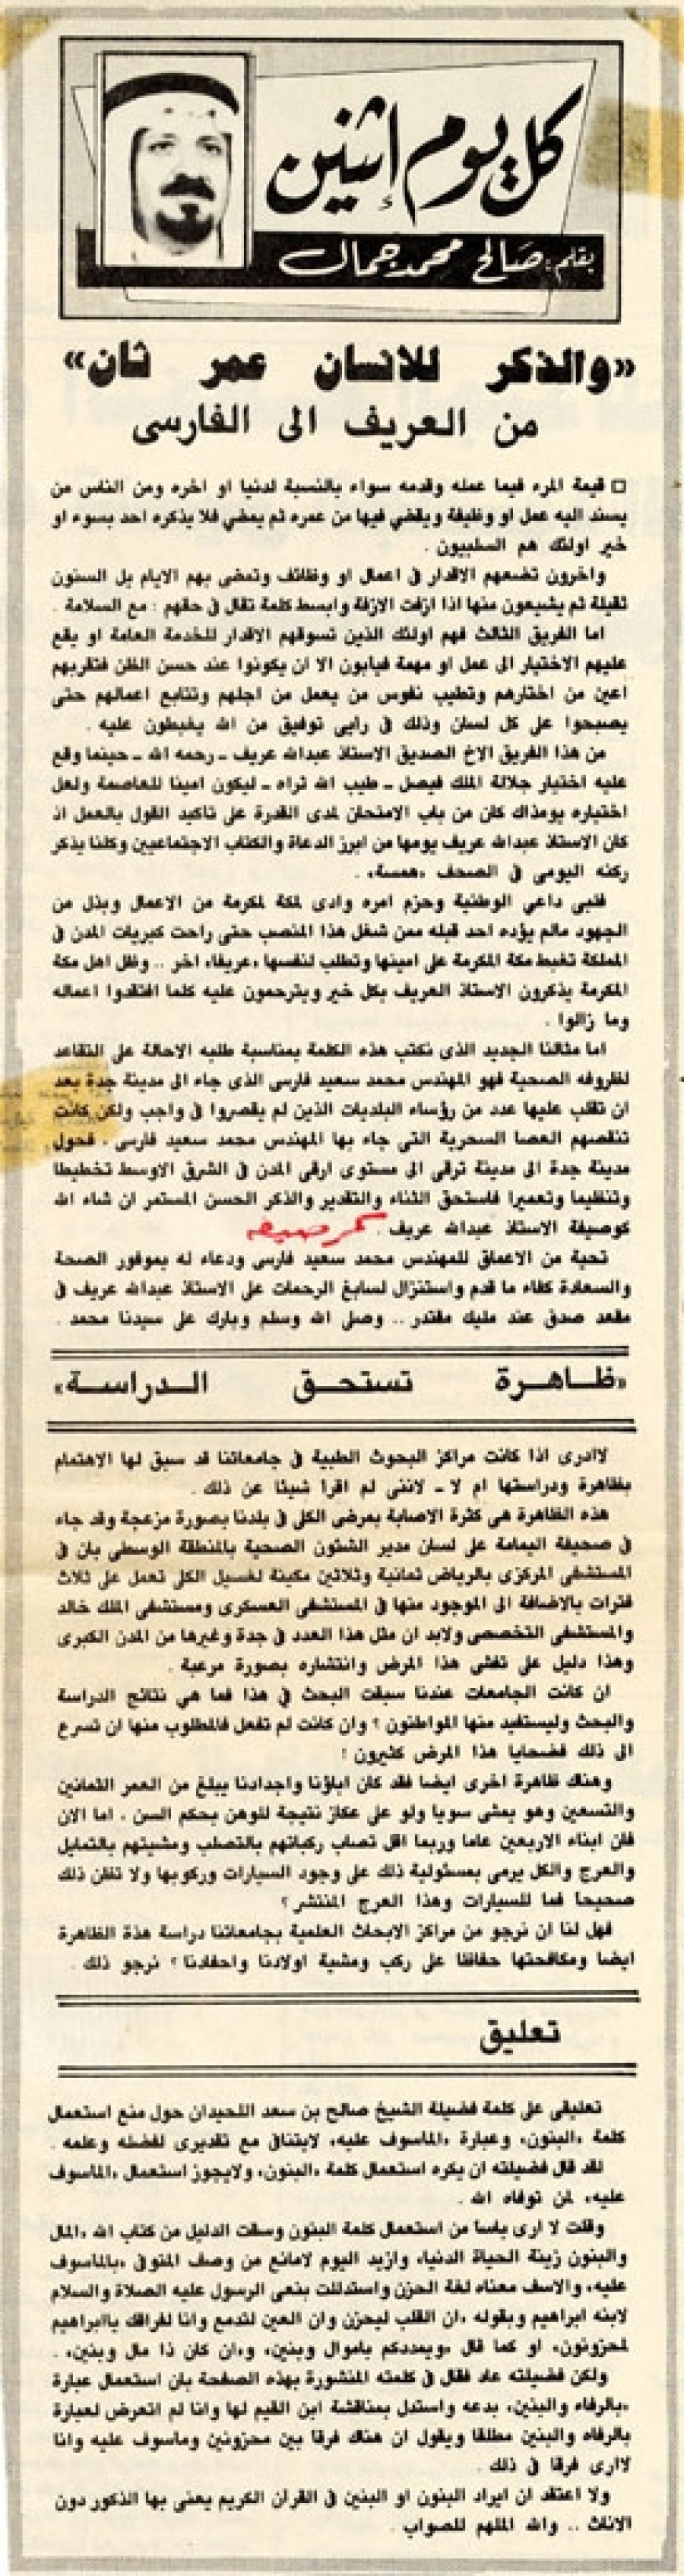 كل يوم إثنين
بقلم: صالح محمد جمال
«والذكر للانسان عمر ثان»
من العريف الى الفارسى
□ قيمة المرء فيما عمله وقدمه سواء بالنسبة لدنيا او اخره ومن الناس من
يسند اليه عمل او وظيفة ويقضي فيها من عمره ثم يمضي فلا يذكره احد بسوء او
خير اولئك هم السلبيون .
واخرون تضعهم الاقدار فى اعمال او وظائف وتمضى بهم الايام بل السنون
ثقيلة ثم يشيعون منها اذا ازفت الازفة وابسط كلمة تقال فى حقهم : مع السلامة .
اما الفريق الثالث فهم اولئك الذين تسوقهم الاقدار للخدمة العامة او يقع
عليهم الاختيار الى عمل او مهمة فيابون الا ان يكونوا عند حسن الظن فتقربهم
اعين من اختارهم وتطيب نفوس من يعمل من اجلهم وتتابع اعمالهم حتى
يصبحوا على كل لسان وذلك فى رأيى توفيق من الله يغبطون عليه .
من هذا الفريق الاخ الصديق الاستاذ عبدالله عريف ـ رحمه الله ـ حينما وقع
عليه اختيار جلالة الملك فيصل ـ طيب الله ثراه ـ ليكون امينا للعاصمة ولعل
اختياره يومذاك كان من باب الامتحان لمدى القدرة على تاكيد القول بالعمل اذ
كان الاستاذ عبدالله عريف يومها من ابرز الدعاة والكتاب الاجتماعيين وكلنا يذكر
ركنه اليومى فى الصحف «همسة» .
فلبى داعي الوطنية وحزم امره وادى لمكة المكرمة من الاعمال وبذل من
الجهود مالم يؤده احد قبله ممن شغل هذا المنصب حتى راحت كبريات المدن فى
المملكة تغبط مكة المكرمة على امينها وتطلب لنفسها «عريفا» اخر .. وظل اهل مكة
المكرمة يذكرون الاستاذ العريف بكل خير ويترحمون عليه كلما افتقدوا اعماله
وما زالوا .
اما مثالنا الجديد الذى نكتب هذه الكلمة بمناسبة طلبه الاحالة على التقاعد
لظروفه الصحية فهو المهندس محمد سعيد فارسى الذى جاء الى مدينة جدة بعد
ان تقلب عليها عدد من رؤساء البلديات الذين لم يقصروا فى واجب ولكن كانت
تنقصهم العصا السحرية التى جاء بها المهندس محمد سعيد فارسى . فحول
مدينة جدة الى مدينة ترقى الى مستوى ارقى المدن فى الشرق الاوسط تخطيطا
وتنظيما وتعميرا فاستحق الثناء والتقدير والذكر الحسن المستمر ان شاء الله
كوصيفة الاستاذ عبدالله عريف .
تحية من الاعماق للمهندس محمد سعيد فارسى ودعاء له بموفور الصحة
والسعادة كفاء ما قدم واستنزال لسابغ الرحمات على الاستاذ عبدالله عريف فى
مقعد صدق عند مليك مقتدر .. وصلى الله وسلم وبارك على سيدنا محمد .
«ظـاهـرة تستحـق الـدراسـة»
لاادرى اذا كانت مراكز البحوث الطبية فى جامعاتنا قد سبق لها الاهتمام
بظاهرة ودراستها ام لا ـ لاننى لم اقرا شيئا عن ذلك .
هذه الظاهرة هى كثرة الاصابة بمرضى الكلى فى بلدنا بصورة مزعجة وقد جاء
فى صحيفة اليمامة على لسان مدير الشئون الصحية بالمنطقة الوسطى بان فى
المستشفى المركزى بالرياض ثمانية وثلاثين مكينة لغسيل الكلى تعمل على ثلاث
فترات بالاضافة الى الموجود منها فى المستشفى العسكرى ومستشفى الملك خالد
والمستشفى التخصصى ولابد ان مثل هذا العدد فى جدة وغيرها من المدن الكبرى
وهذا دليل على تفشى هذا المرض وانتشاره بصورة مرعبة .
ان كانت الجامعات عندنا سبقت البحث فى هذا فما هي نتائج الدراسة
والبحث وليستفيد منها المواطنون ؟ وان كانت لم تفعل فالمطلوب منها ان تسرع
الى ذلك فضحايا هذا المرض كثيرون !
وهناك ظاهرة اخرى ايضا فقد كان اباؤنا واجدادنا يبلغ من العمر الثمانين
والتسعين وهو يمشى سويا ولو على عكاز نتيجة للوهن بحكم السن . اما الان
فان ابناء الاربعين عاما وربما اقل تصاب ركباتهم بالتصلب ومشيتهم بالتمايل
والعرج والكل يرمى بمسئولية ذلك على وجود السيارات وركوبها ولا تظن ذلك
صحيحا فما للسيارات وهذا العرج المنتشر ؟
فهل لنا ان نرجو من مراكز الابحاث العلمية بجامعاتنا دراسة هذة الظاهرة
ايضا ومكافحتها حفاظا على ركب ومشية اولادنا واحفادنا ؟ نرجو ذلك .
تعليق
تعليقى على كلمة فضيلة الشيخ صالح بن سعد اللحيدان حول منع استعمال
كلمة «البنون» وعبارة «الماسوف عليه» لايتنافى مع تقديرى لفضله وعلمه .
لقد قال فضيلته ان يكره استعمال كلمة «البنون» ولايجوز استعمال «الماسوف
عليه» لمن توفاه الله .
وقلت لا ارى باسا من استعمال كلمة البنون وسقت الدليل من كتاب الله «المال
والبنون زينة الحياة الدنيا» وازيد اليوم لامانع من وصف المتوفى «بالماسوف
عليه» والاسف معناه لغة الحزن واستدللت بنعى الرسول عليه الصلاة والسلام
لابنه ابراهيم وبقوله «ان القلب ليحزن وان العين لتدمع وانا لفراقك ياابراهيم
لمحزونون» او كما قال «ويمددكم باموال وبنين» و«ان كان ذا مال وبنين» .
ولكن فضيلته عاد فقال فى كلمته المنشورة بهذه الصفحة بان استعمال عبارة
«بالرفاه والبنين» بدعه واستدل بمناقشة ابن القيم لها وانا لم اتعرض لعبارة
بالرفاه والبنين مطلقا ويقول ان هناك فرقا بين محزونين وماسوف عليه وانا
لاارى فرقا فى ذلك .
ولا اعتقد ان ايراد البنون او البنين فى القران الكريم يعنى بها الذكور دون
الاناث .. والله الملهم للصواب .